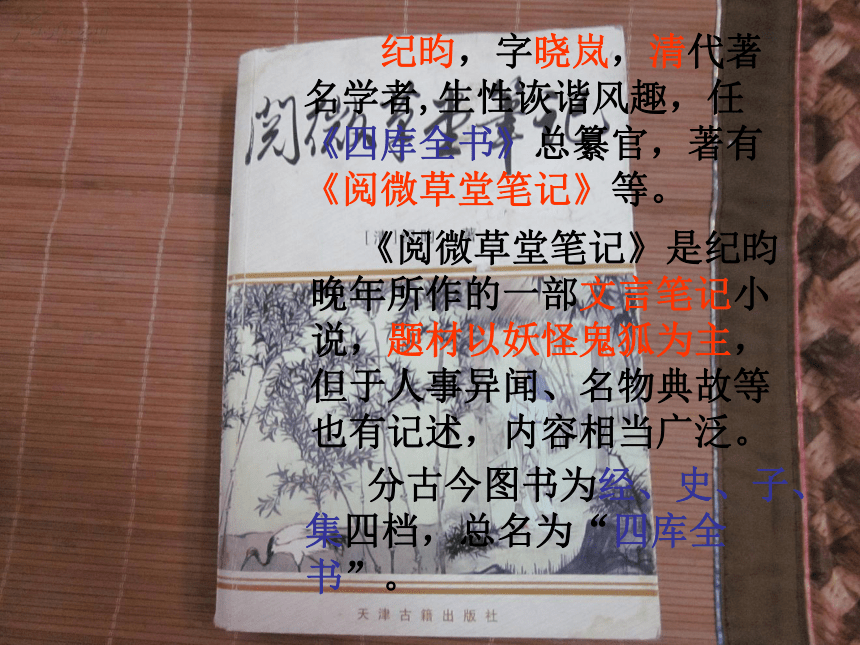 纪昀，字晓岚，清代著
名学者,生性诙谐风趣，任
《四库全书》总纂官，著有
《阅微草堂笔记》等。
《阅微草堂笔记》是纪昀
晚年所作的一部文言笔记小
说，题材以妖怪鬼狐为主，
但于人事异闻、名物典故等
也有记述，内容相当广泛。
分古今图书为经、史、子、
集四档，总名为“四库全
书”。
閱微草堂筆記
[清]纪昀 著
天津古籍出版社